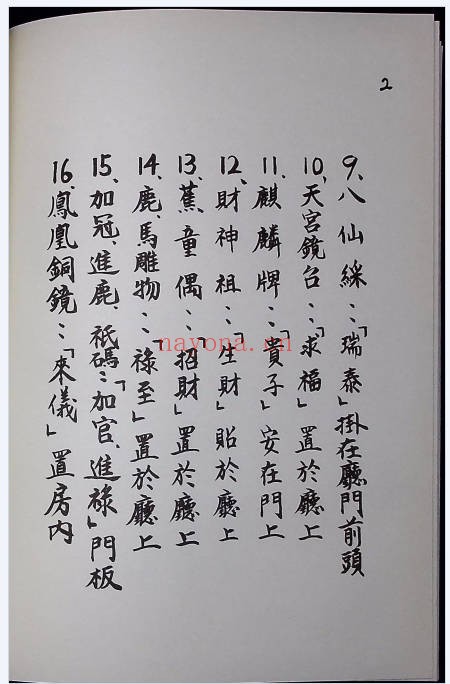 2
9、八仙綵：「瑞泰」掛在廳門前頭
10、天宮鏡台：「求福」置於廳上
11、麒麟牌：「貴子」安在門上
12、財神祖：「生財」貼於廳上
13、蕉童偶：「招財」置於廳上
14、鹿、馬雕物：「祿至」置於廳上
15、加冠、進鹿、祇碼：「加官、進祿」門板
16、鳳凰銅鏡：「來儀」置房內
nayona.cn